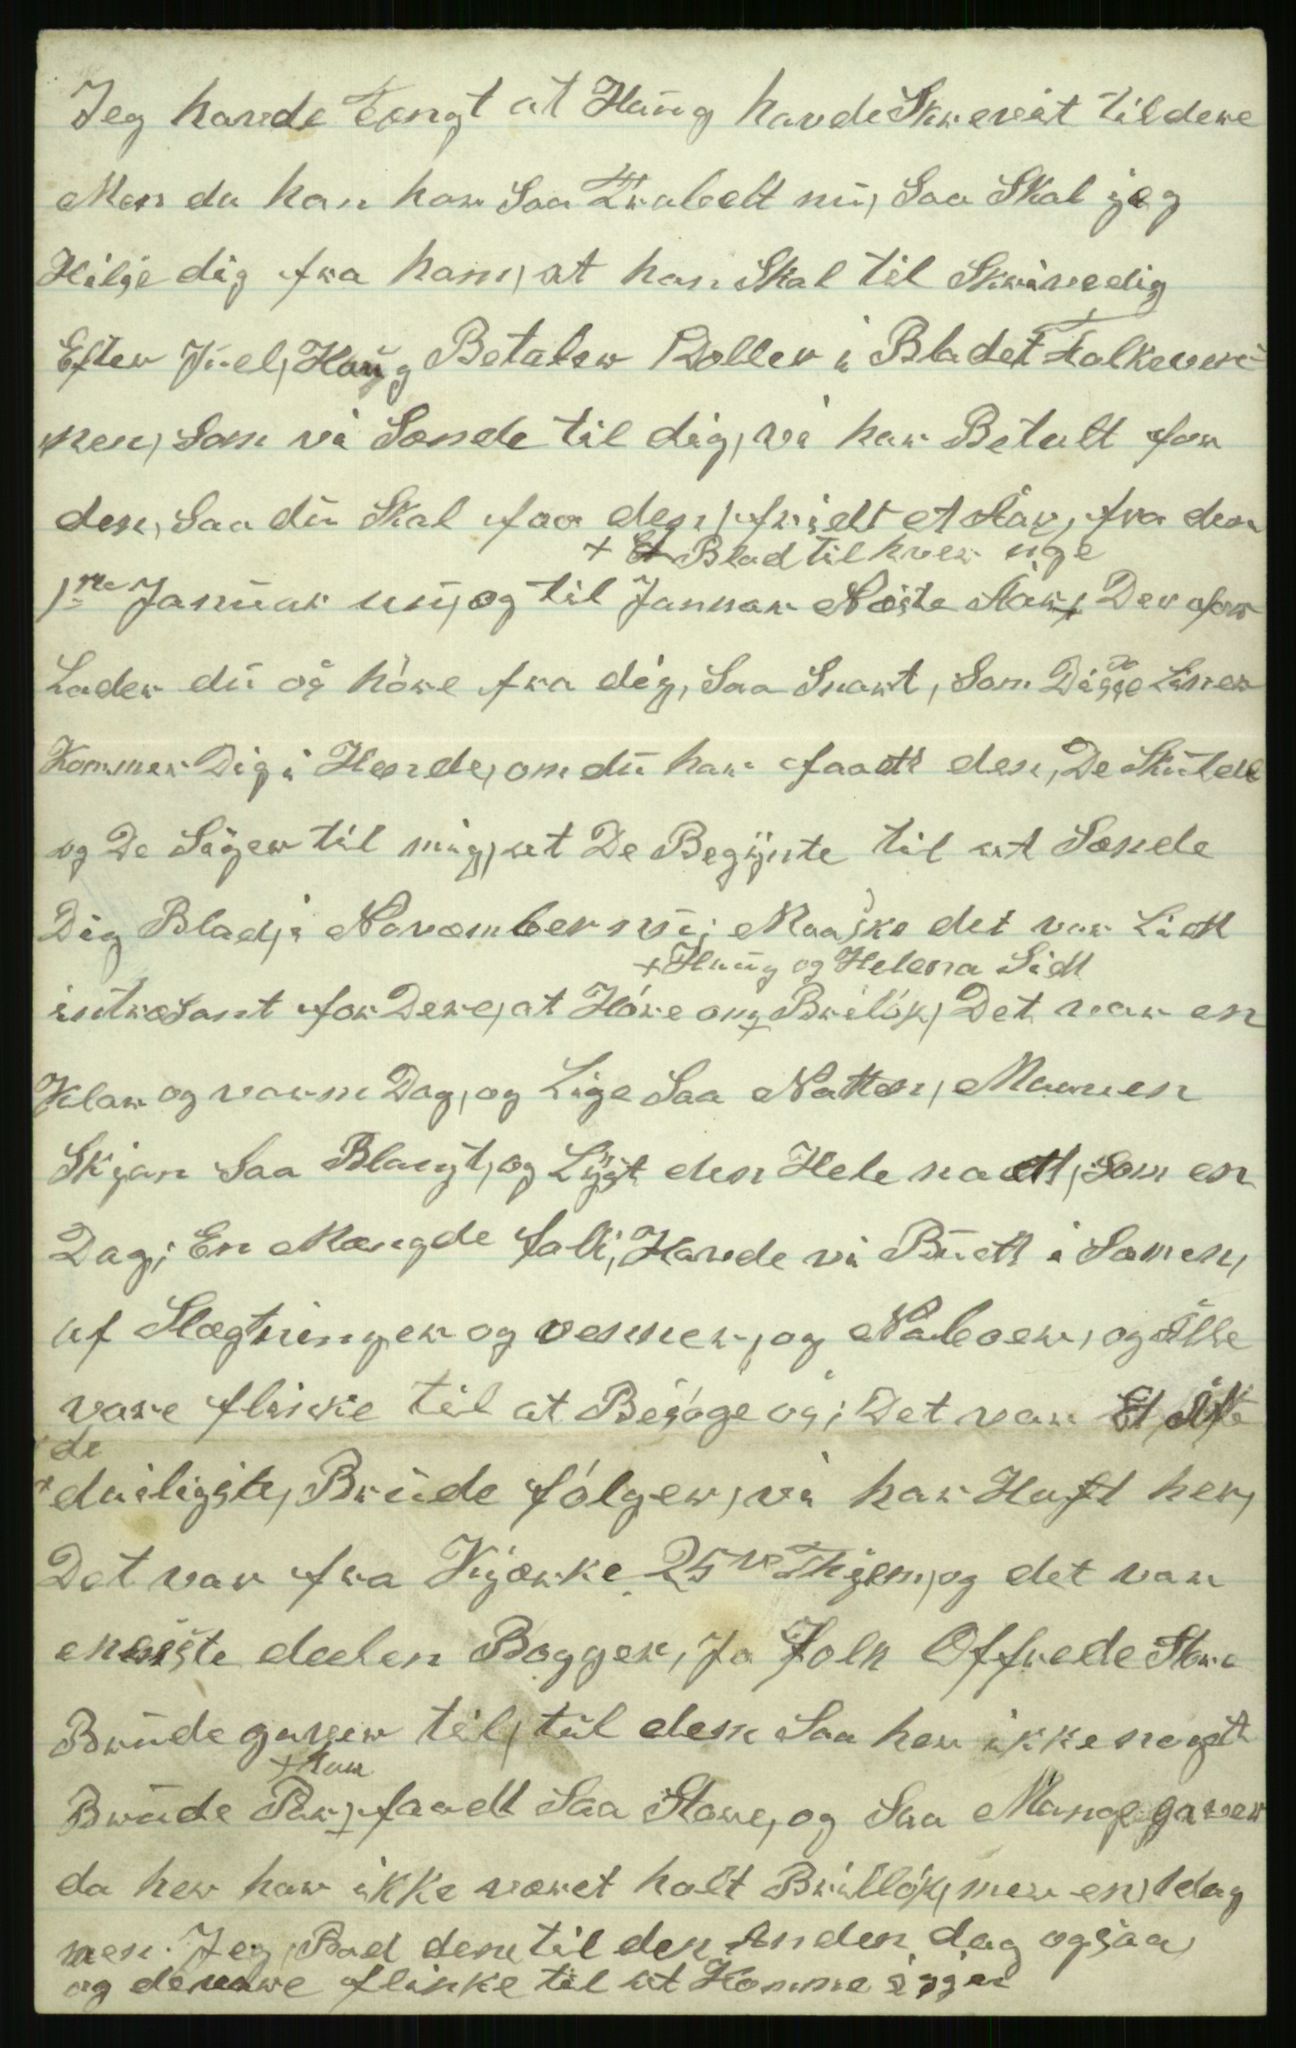 Jeg havde tængt at Haug havde Skrevet til dere
Men da han har Saa Trabelt nu, Saa Skal jeg
Hilse dig fra ham, at han Skal til Skrive dig
Efter Juel, Haug Betaler 1 Doller i Bladet Folkeven-
nen, Som vi Sænde til dig, vi har Betalt for
den, Saa du Skal faa den fridt et Aar, fra den
+ Et Blad til hver uge
1re Januar nu, og til Januar Næste Aar, + Derfor
Lader du os høre fra dig, Saa Snart, Som Disse Liner
Kommer Dig i Hænde, om du har faaett den, De Skulde
og De Siger til mig, at De Begynte til at Sænde
Dig Blad, i November nu; Maaske det var Lidt
+ Haug og Helena Sidt
intresant for Dere, at Høre om + Brüløp, Det var en
Klar og varm Dag, og Lige Saa Natten, Maanen
Skjen Saa Blangt, og Lyst den Hele naatt, Som en
Dag; En Mængde folk, Havde vi Buett i Samen,
af Slægtninger og venner, og Naboer, og Alle
vare flinke til at Besøge os; Det var Et Af
de
+ deiligste, Brude følger, vi har Haft her,
Det var fra Kjærke 25ve Thiem, og det var
meiste deelen Bogger, Ja folk Offrede Store
Brude gaver til, til dem Saa her ikke noget
+ har
Brude Par, + faaett Saa Store, og Saa Mange gaver
da her har ikke været holt Brülløp, mer en 1 dag
men Jeg Bad dem til den Anden dag ogsaa,
og de vare flinke til at Komme iggen